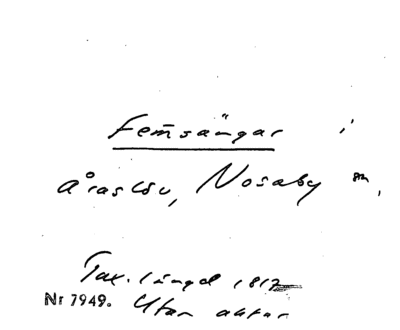 Femsängar i
Åraslöv, Nosaby sn,
Tax. längd 1812
Nr 7949. Utan aktnr